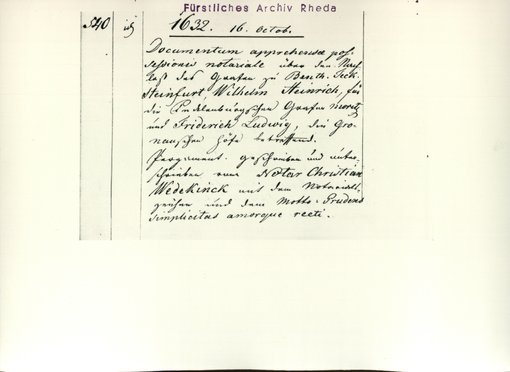 Fürstliches Archiv Rheda
540 1632. 16. Octob.
Documentum apprehensae pos-
sessionis notariale über den Nach-
laß des Grafen zu Benth. Teck.
Steinfurt Wilhelm Heinrich, für
die Tecklenburgschen Grafen Moritz
und Friderich Ludwig, die Gro-
nauschen Höfe betreffend.
Pergament. geschrieben und unter-
schrieben vom Notar Christian
Wedekinck mit dem Notariats-
zeichen und dem Motto: Prudens
simplicitas amorque recti.